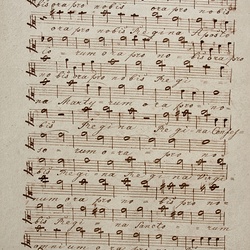 nobis ora pro nobis
ora pro nobis Regina Aposto
lorum ora pro nobis ora pro
nobis ora pro nobis Regi
na Martyrum ora pro no
bis Regina Regina Confes
sorum ora pro
nobis Regina Regina Virgi
num ora pro nobis ora pro no
bis Regina Sanctorum
omnium ora pro